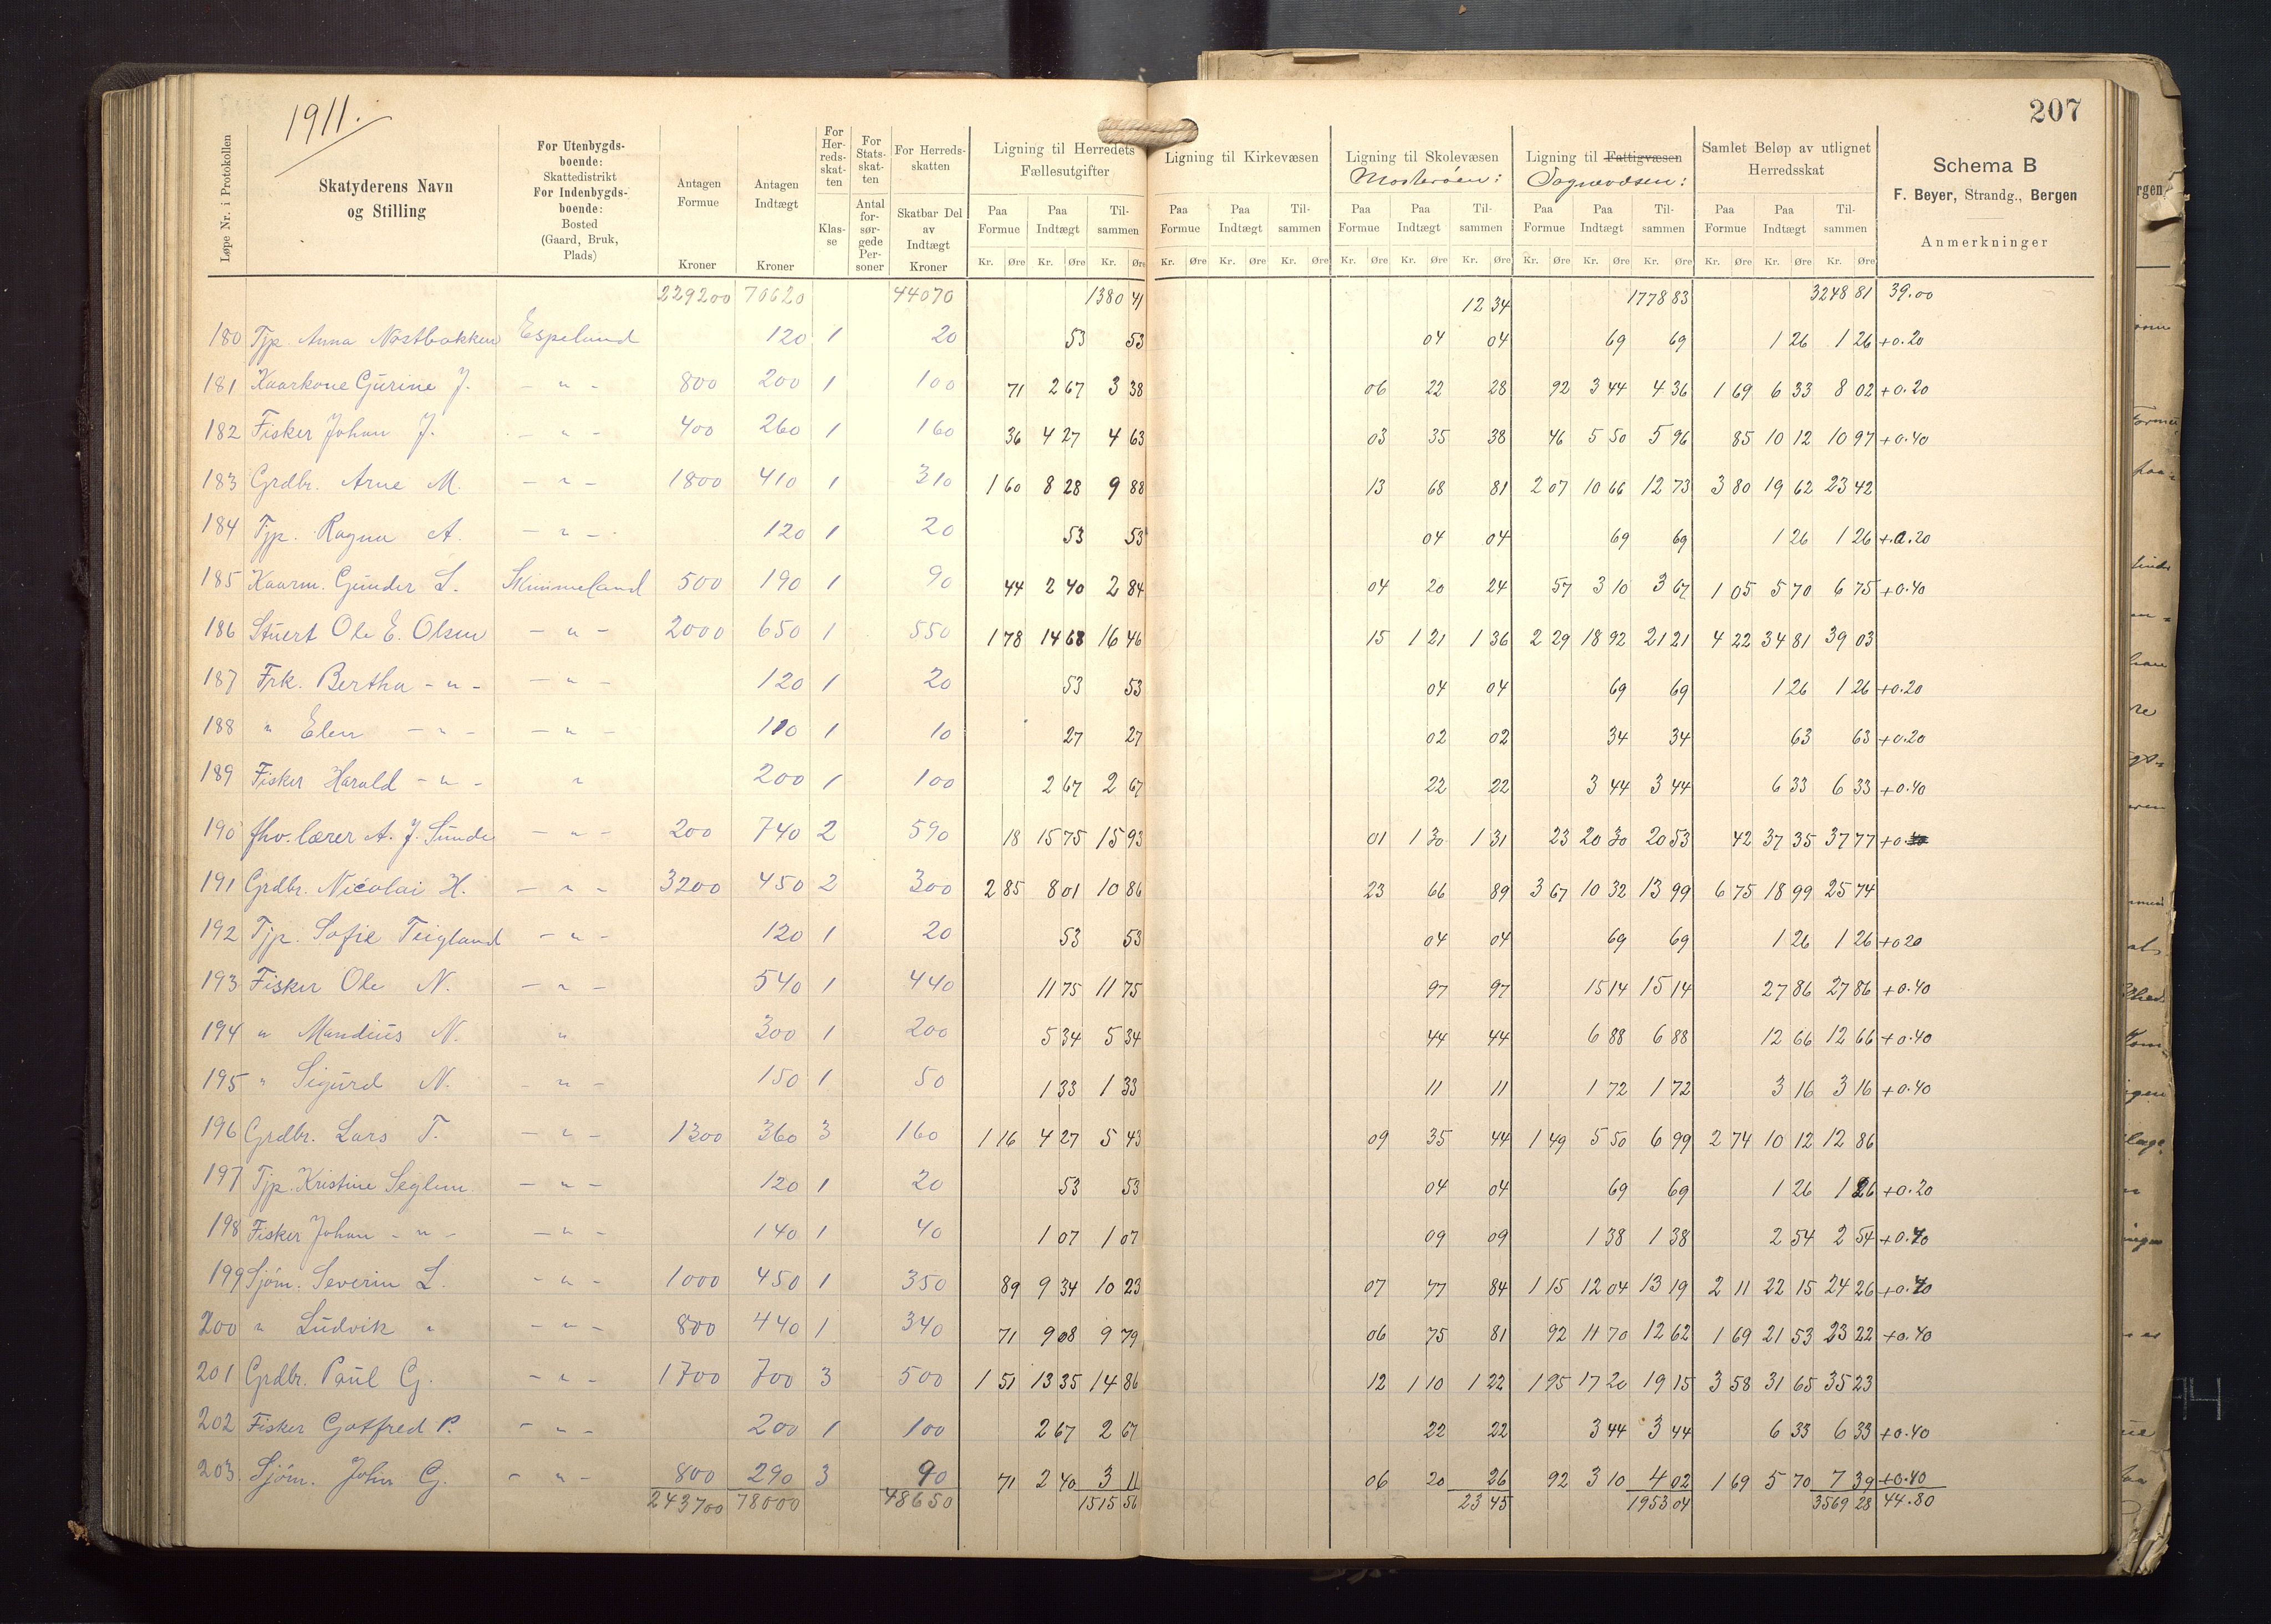 1911.
207
Løpe Nr. i Protokollen
Skatyderens Navn og Stilling
For Utenbygdsboende: Skattedistrikt For Indenbygdsboende: Bosted (Gaard, Bruk, Plads)
Antagen Formue Kroner
Antagen Indtægt Kroner
For Herredsskatten Klasse
For Statsskatten Antal forsørgede Personer
For Herredsskatten Skatbar Del av Indtægt Kroner
Ligning til Herredets Fællesutgifter
Ligning til Kirkevæsen
Ligning til Skolevæsen Mosterøen:
Ligning til Fattigvæsen Sognevæsen:
Samlet Beløp av utlignet Herredsskat
Schema B
F. Beyer, Strandg., Bergen
Anmerkninger
Paa Formue Paa Indtægt Tilsammen Paa Formue Paa Indtægt Tilsammen Paa Formue Paa Indtægt Tilsammen Paa Formue Paa Indtægt Tilsammen Paa Formue Paa Indtægt Tilsammen
Kr. Øre Kr. Øre Kr. Øre Kr. Øre Kr. Øre Kr. Øre Kr. Øre Kr. Øre Kr. Øre Kr. Øre Kr. Øre Kr. Øre Kr. Øre Kr. Øre Kr. Øre
229200 70620 44070 1380 41 12 34 1778 83 3248 81 39.00
180 Tjp. Anna Nøstbakken Espeland 120 1 20 53 53 04 04 69 69 1 26 1 26 +0.20
181 Kaarkone Gurine J. - " - 800 200 1 100 71 2 67 3 38 06 22 28 92 3 44 4 36 1 69 6 33 8 02 +0.20
182 Fisker Johan J. - " - 400 260 1 160 36 4 27 4 63 03 35 38 46 5 50 5 96 85 10 12 10 97 +0.40
183 Grdbr. Arne M. - " - 1800 410 1 310 1 60 8 28 9 88 13 68 81 2 07 10 66 12 73 3 80 19 62 23 42
184 Tjp. Ragna A. - " - 120 1 20 53 53 04 04 69 69 1 26 1 26 +0.20
185 Kaarm. Gunder L. Skimmeland 500 190 1 90 44 2 40 2 84 04 20 24 57 3 10 3 67 1 05 5 70 6 75 +0.40
186 Stuert Ole E. Olsen - " - 2000 650 1 550 1 78 14 68 16 46 15 1 21 1 36 2 29 18 92 21 21 4 22 34 81 39 03
187 Frk. Bertha - " - - " - 120 1 20 53 53 04 04 69 69 1 26 1 26 +0.20
188 " Elen - " - - " - 110 1 10 27 27 02 02 34 34 63 63 +0.20
189 Fisker Harald - " - " 200 1 100 2 67 2 67 22 22 3 44 3 44 6 33 6 33 +0.40
190 fhv. lærer A. J. Sunde - " - 200 740 2 590 18 15 75 15 93 01 1 30 1 31 23 20 30 20 53 42 37 35 37 77 +0.40
191 Grdbr. Nicolai H. - " - 3200 450 2 300 2 85 8 01 10 86 23 66 89 3 67 10 32 13 99 6 75 18 99 25 74
192 Tjp. Sofie Teigland - " - 120 1 20 53 53 04 04 69 69 1 26 1 26 +0 20
193 Fisker Ole N. - " - 540 1 440 11 75 11 75 97 97 15 14 15 14 27 86 27 86 +0.40
194 " Mandius N. " 300 1 200 5 34 5 34 44 44 6 88 6 88 12 66 12 66 +0.40
195 " Sigurd N. - " - 150 1 50 1 33 1 33 11 11 1 72 1 72 3 16 3 16 +0.40
196 Grdbr. Lars T. - " - 1300 360 3 160 1 16 4 27 5 43 09 35 44 1 49 5 50 6 99 2 74 10 12 12 86
197 Tjp. Kristine Seglem - " - 120 1 20 53 53 04 04 69 69 1 26 1 26 +0.20
198 Fisker Johan - " - - " - 140 1 40 1 07 1 07 09 09 1 38 1 38 2 54 2 54 +0.40
199 Sjøm. Severin L. - " - 1000 450 1 350 89 9 34 10 23 07 77 84 1 15 12 04 13 19 2 11 22 15 24 26 +0.40
200 " Ludvik " - " - 800 440 1 340 71 9 08 9 79 06 75 81 92 11 70 12 62 1 69 21 53 23 22 +0.40
201 Grdbr. Paul G. - " - 1700 700 3 500 1 51 13 35 14 86 12 1 10 1 22 1 95 17 20 19 15 3 58 31 65 35 23
202 Fisker Gotfred P. - " - 200 1 100 2 67 2 67 22 22 3 44 3 44 6 33 6 33 +0.40
203. Sjøm. John G. - " - 800 290 3 90 71 2 40 3 11 06 20 26 92 3 10 4 02 1 69 5 70 7 39 +0.40
243700 78000 48650 1515 56 23 45 1953 04 3569 28 44.80